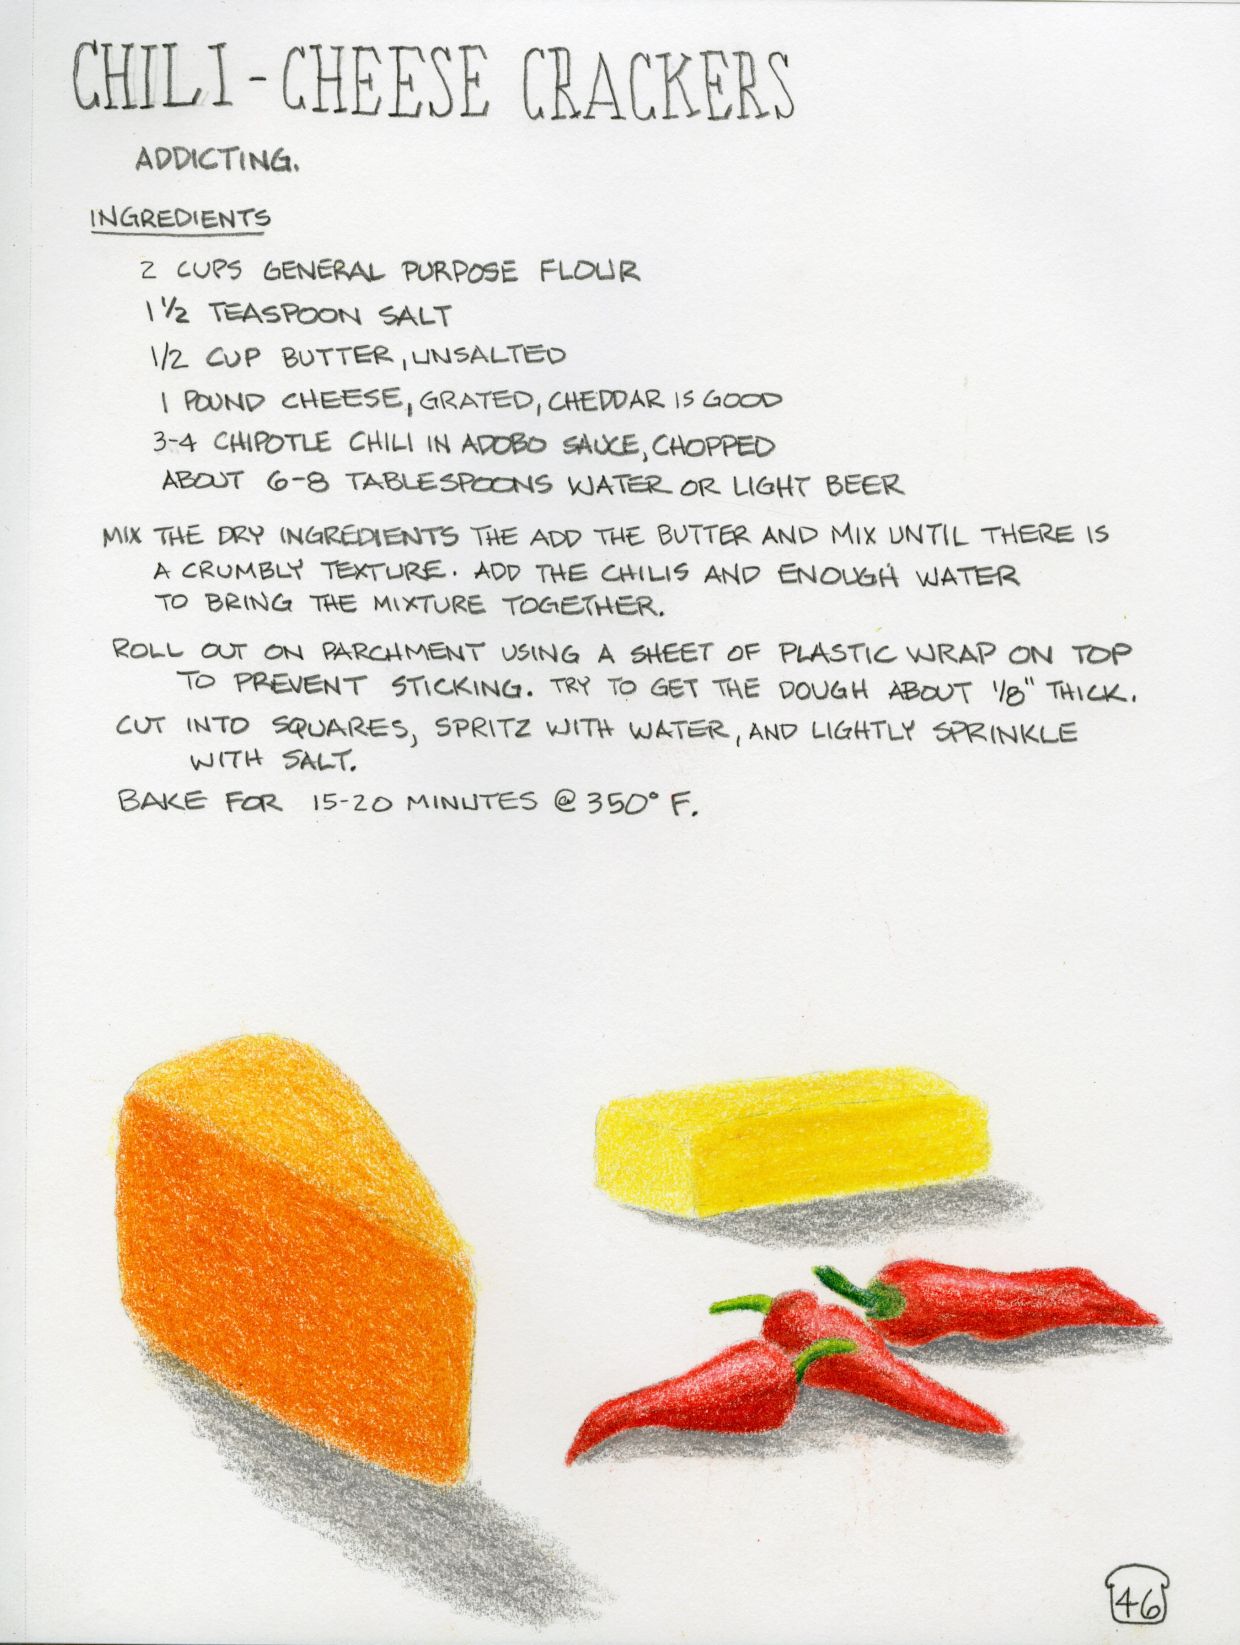 CHILI-CHEESE CRACKERS
ADDICTING.
INGREDIENTS
2 CUPS GENERAL PURPOSE FLOUR
1 1/2 TEASPOON SALT
1/2 CUP BUTTER, UNSALTED
1 POUND CHEESE, GRATED, CHEDDAR IS GOOD
3-4 CHIPOTLE CHILI IN ADOBO SAUCE, CHOPPED
ABOUT 6-8 TABLESPOONS WATER OR LIGHT BEER
MIX THE DRY INGREDIENTS THE ADD THE BUTTER AND MIX UNTIL THERE IS
A CRUMBLY TEXTURE. ADD THE CHILIS AND ENOUGH WATER
TO BRING THE MIXTURE TOGETHER.
ROLL OUT ON PARCHMENT USING A SHEET OF PLASTIC WRAP ON TOP
TO PREVENT STICKING. TRY TO GET THE DOUGH ABOUT 1/8" THICK.
CUT INTO SQUARES, SPRITZ WITH WATER, AND LIGHTLY SPRINKLE
WITH SALT.
BAKE FOR 15-20 MINUTES @ 350° F.
46